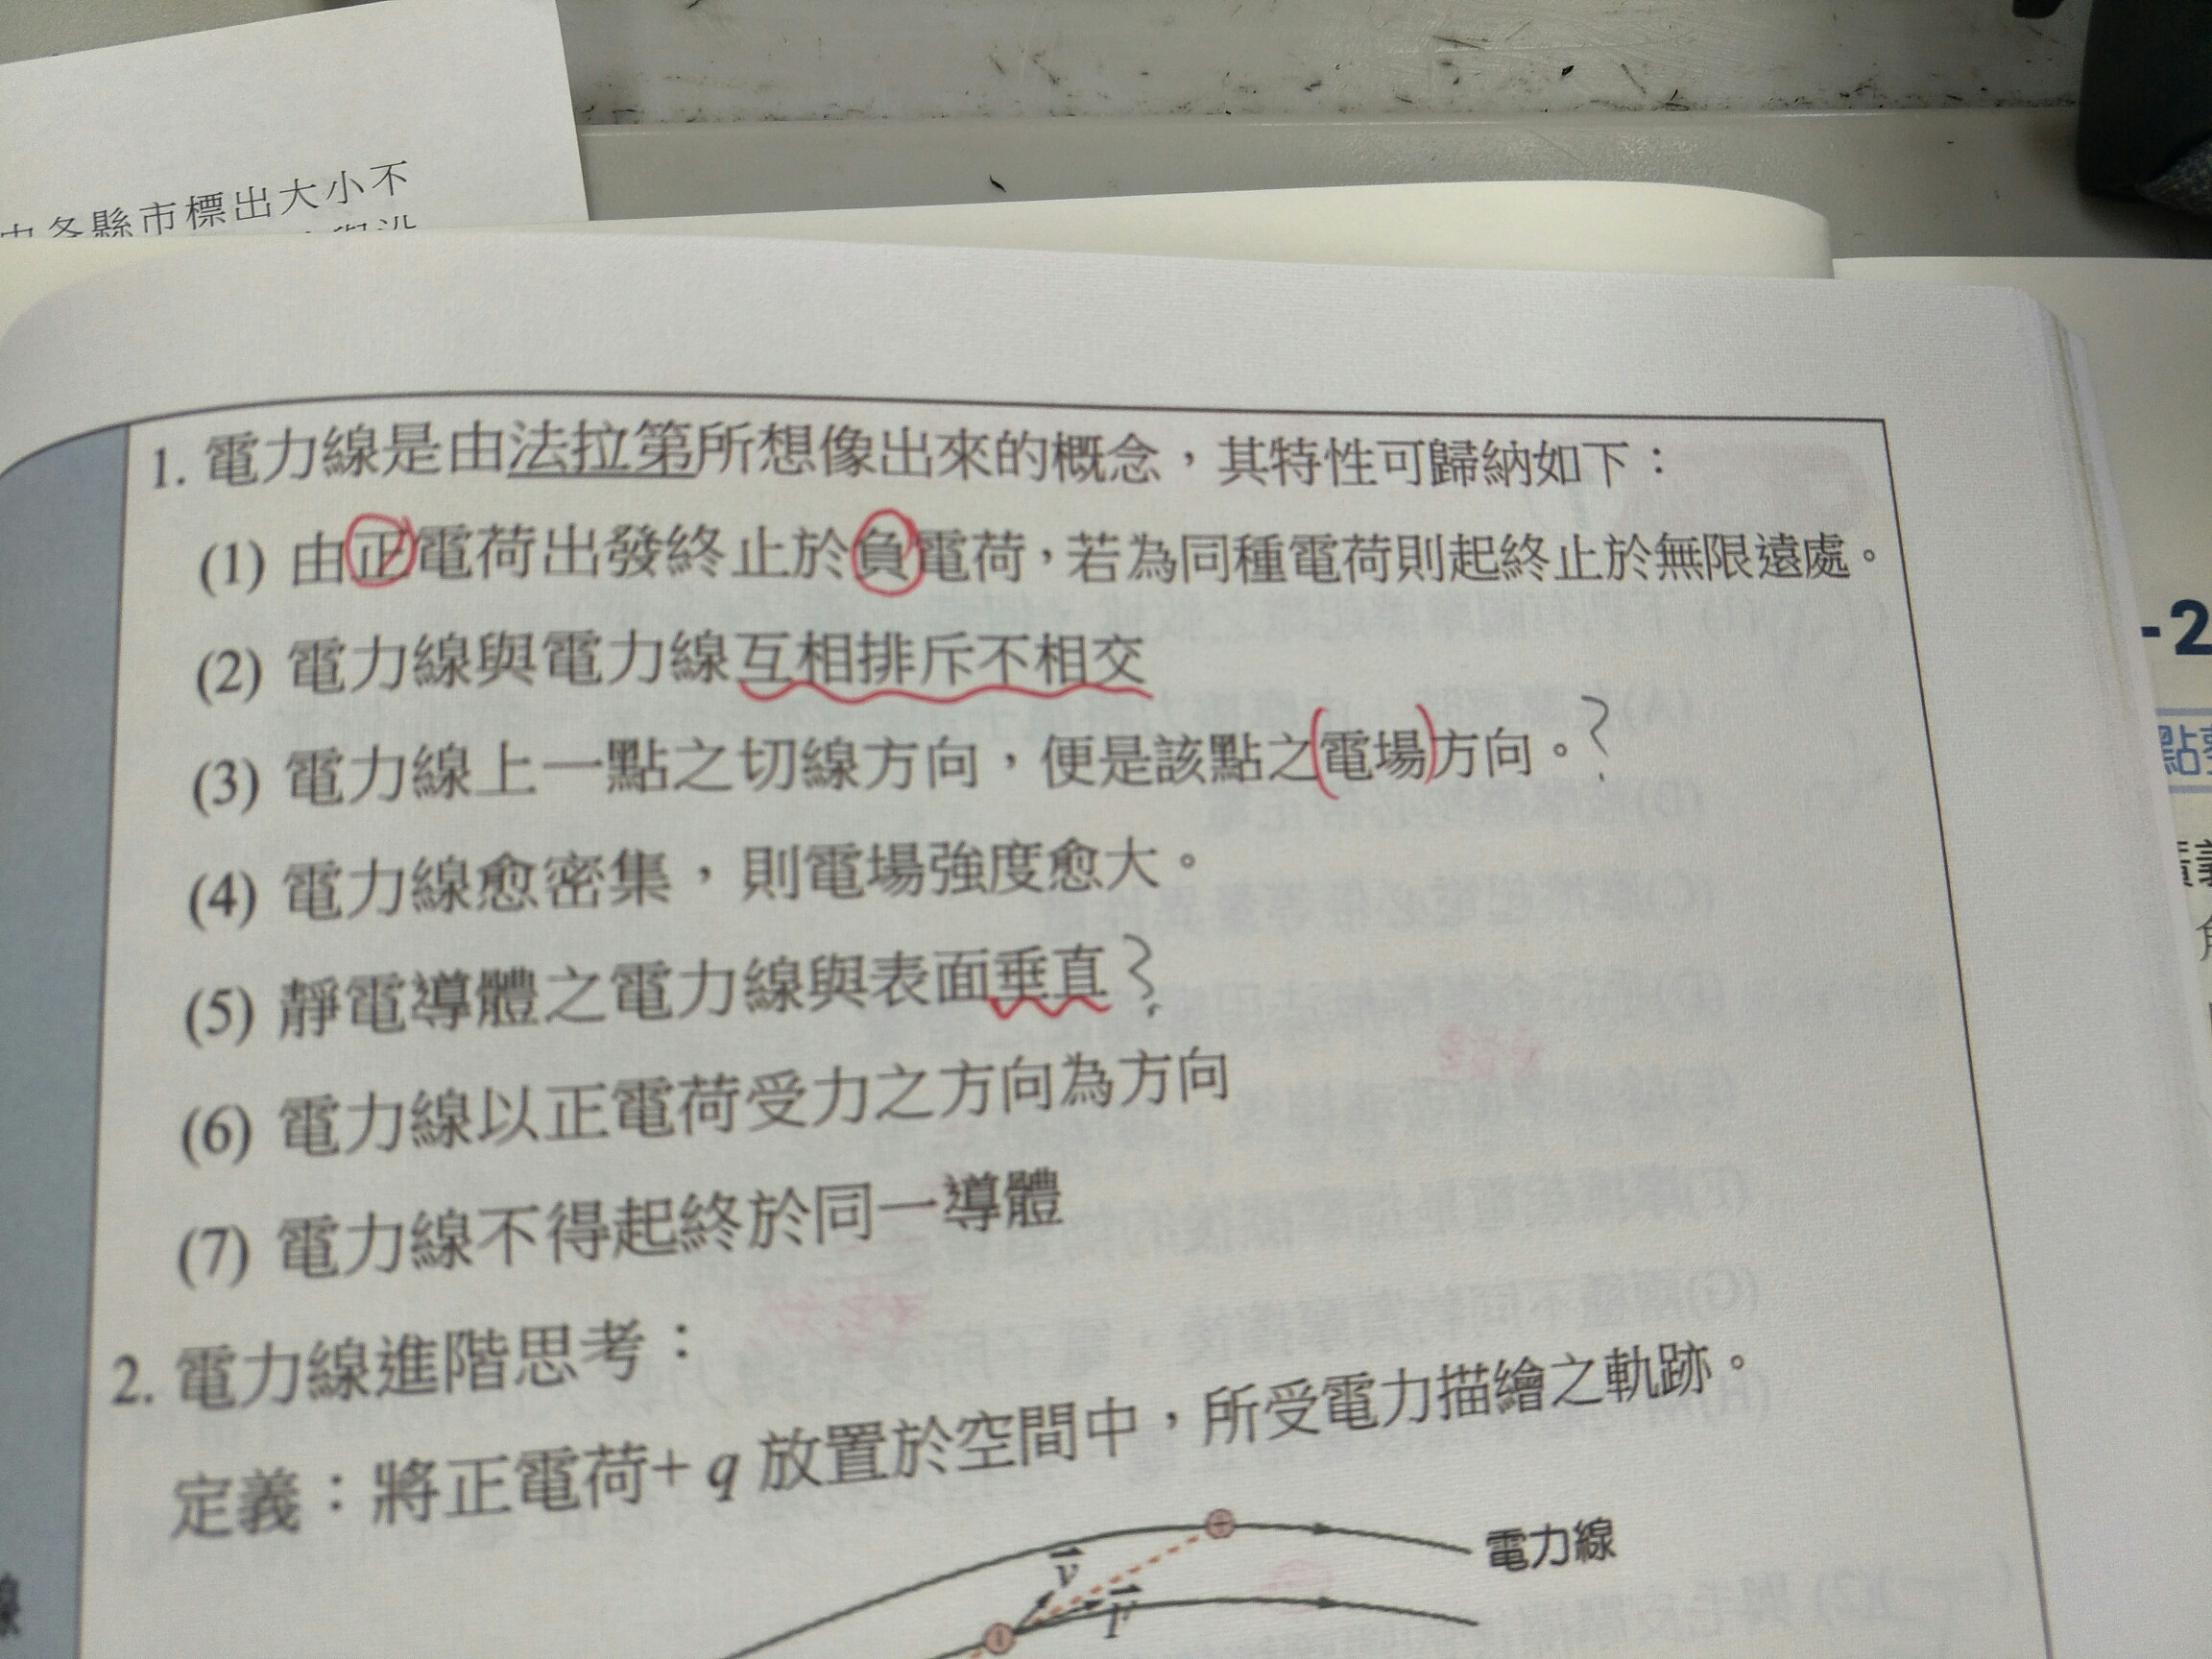 各縣市標出大小不
1. 電力線是由法拉第所想像出來的概念，其特性可歸納如下：
(1) 由正電荷出發終止於負電荷，若為同種電荷則起終止於無限遠處。
(2) 電力線與電力線互相排斥不相交
(3) 電力線上一點之切線方向，便是該點之(電場)方向。?
(4) 電力線愈密集，則電場強度愈大。
(5) 靜電導體之電力線與表面垂直?
(6) 電力線以正電荷受力之方向為方向
(7) 電力線不得起終於同一導體
2. 電力線進階思考：
定義：將正電荷+q 放置於空間中，所受電力描繪之軌跡。
電力線
v
F
-2
點